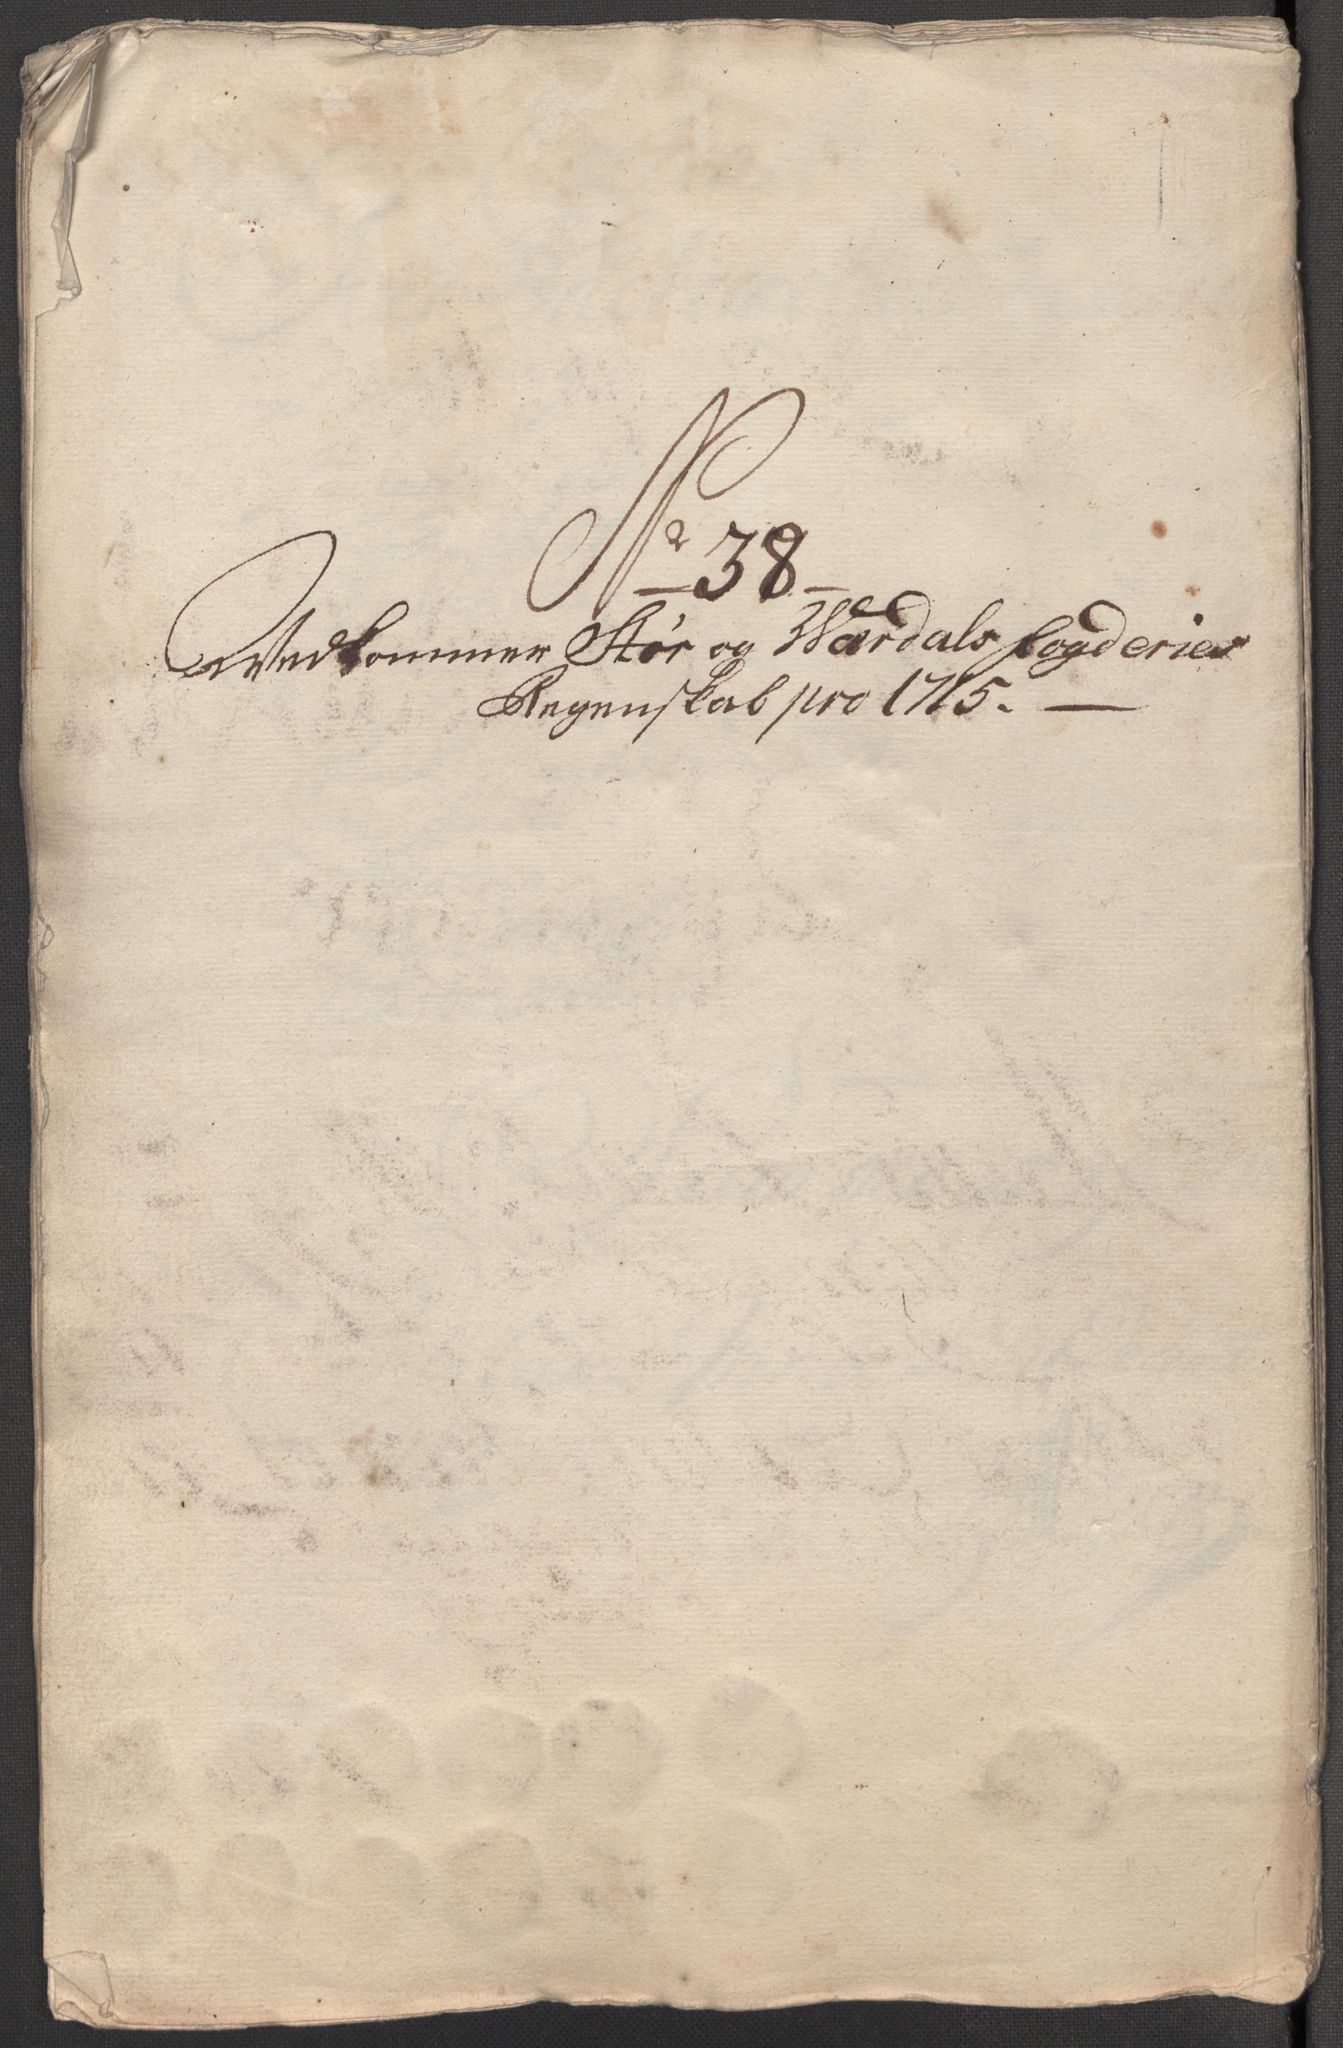 No 38
Vedkommer Stør og Wærdals fogderies
Regenskab pro 1715.